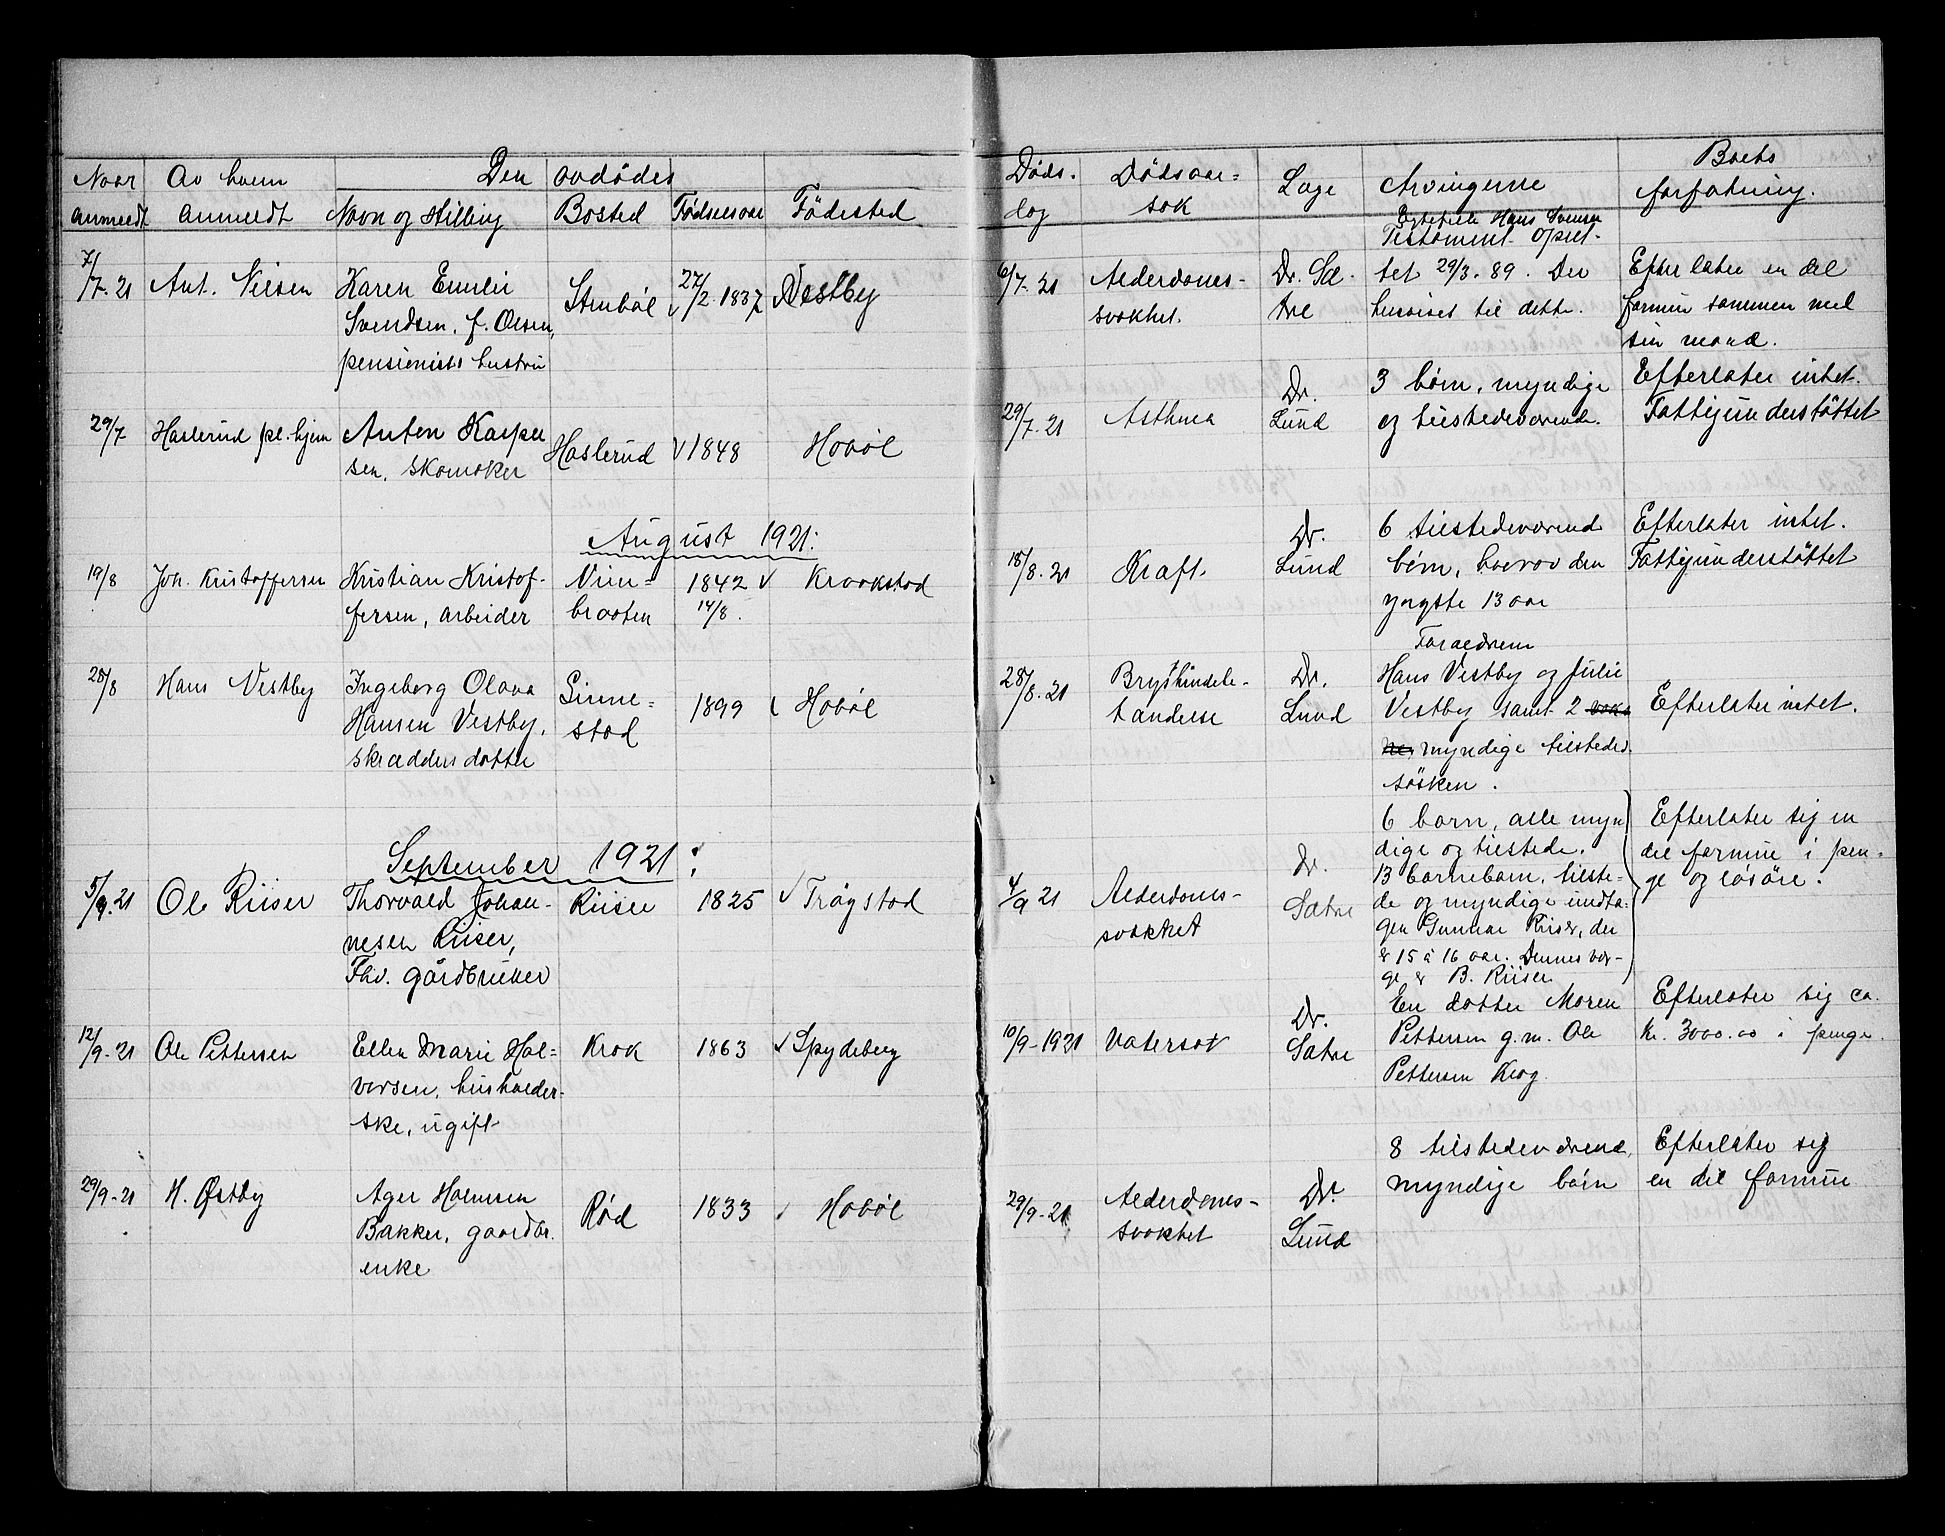 Naar anmeldt
Av hvem anmeldt
Den avdødes
Navn og stilling
Bosted
Fødselsaar
Fødested
Døds-dag
Dødsaar-sak
Læge
Arvingerne
Boets forfatning.
7/7-21
Ant. Nilsen
Karen Emilie
Svendsen, f. Olsen,
pensionists hustru
Stenbøl
27/2-1837
Vestby
6/7-21
Alderdoms-
svakhet.
Dr. Sæ-
tre
Hans Svensen
Testament opret-
tet 29/3-89. Der
henvises til dette.
Efterlater en del
formue sammen med
sin mand.
29/7
Haslerud pl.hjem
Anton Kasper
sen, skomaker
Haslerud
1848
Hobøl
29/7-21
Asthma
Dr.
Lund
3 børn, myndige
og tilstedeværende.
Efterlater intet.
Fattigunderstøttet
August 1921:
19/8
Joh. Kristoffersen
Kristian Kristof-
fersen, arbeider
braaten
1842
14/8.
Kraakstad
18/8-21
Kræft.
Dr.
Lund
6 tilstedeværend
børn, hvorav den
yngste 13 aar
Efterlater intet.
Fattigunderstøttet
28/8
Hans Vestby
Ingeborg Olava
Hansen Vestby,
skrædders datter
Ginne-
stad
1899
Hobøl
28/8-21
Brysthindebe-
tændelse
Dr.
Lund
Forældrene
Hans Vestby og Julie
Vestby samt 2 voks
ne, myndige tilstedev.
søsken.
Efterlater intet.
September 1921:
5/9-21
Ole Riiser
Thorvald Johan-
nesen Riiser,
Fhv. gårdbruker
Riiser
1825
Trøgstad
4/9 21
Alderdoms-
svakhet
Dr.
Sætre
6 barn, alle myn
dige og tilstede.
13 barnebarn, tilste-
de og myndige undta-
gen Gunnar Riiser, der
er 15 à 16 aar. Dennes ver-
ge er B. Riiser
Efterlater sig en
del formue i pen-
ge og løsøre.
12/9-21
Ole Pettersen
Ellen Marie Hal-
vorsen, husholder-
ske, ugift
Krok
1863
Spydeberg
10/9-1921
Vatersot
Dr.
Sætre
En datter Maren
Pettersen g.m. Ole
Pettersen Krog.
Efterlater sig ca.
kr. 3000.00 i penge.
29/9-21
H. Østby
Ager Halmsen
Bakker, gaardbr.
enke
Rød
1833
Hobøl
29/9-21
Alderdoms-
svakhet
Dr.
Lund
8 tilstedeværend,
myndige børn
Efterlater sig
en del formue